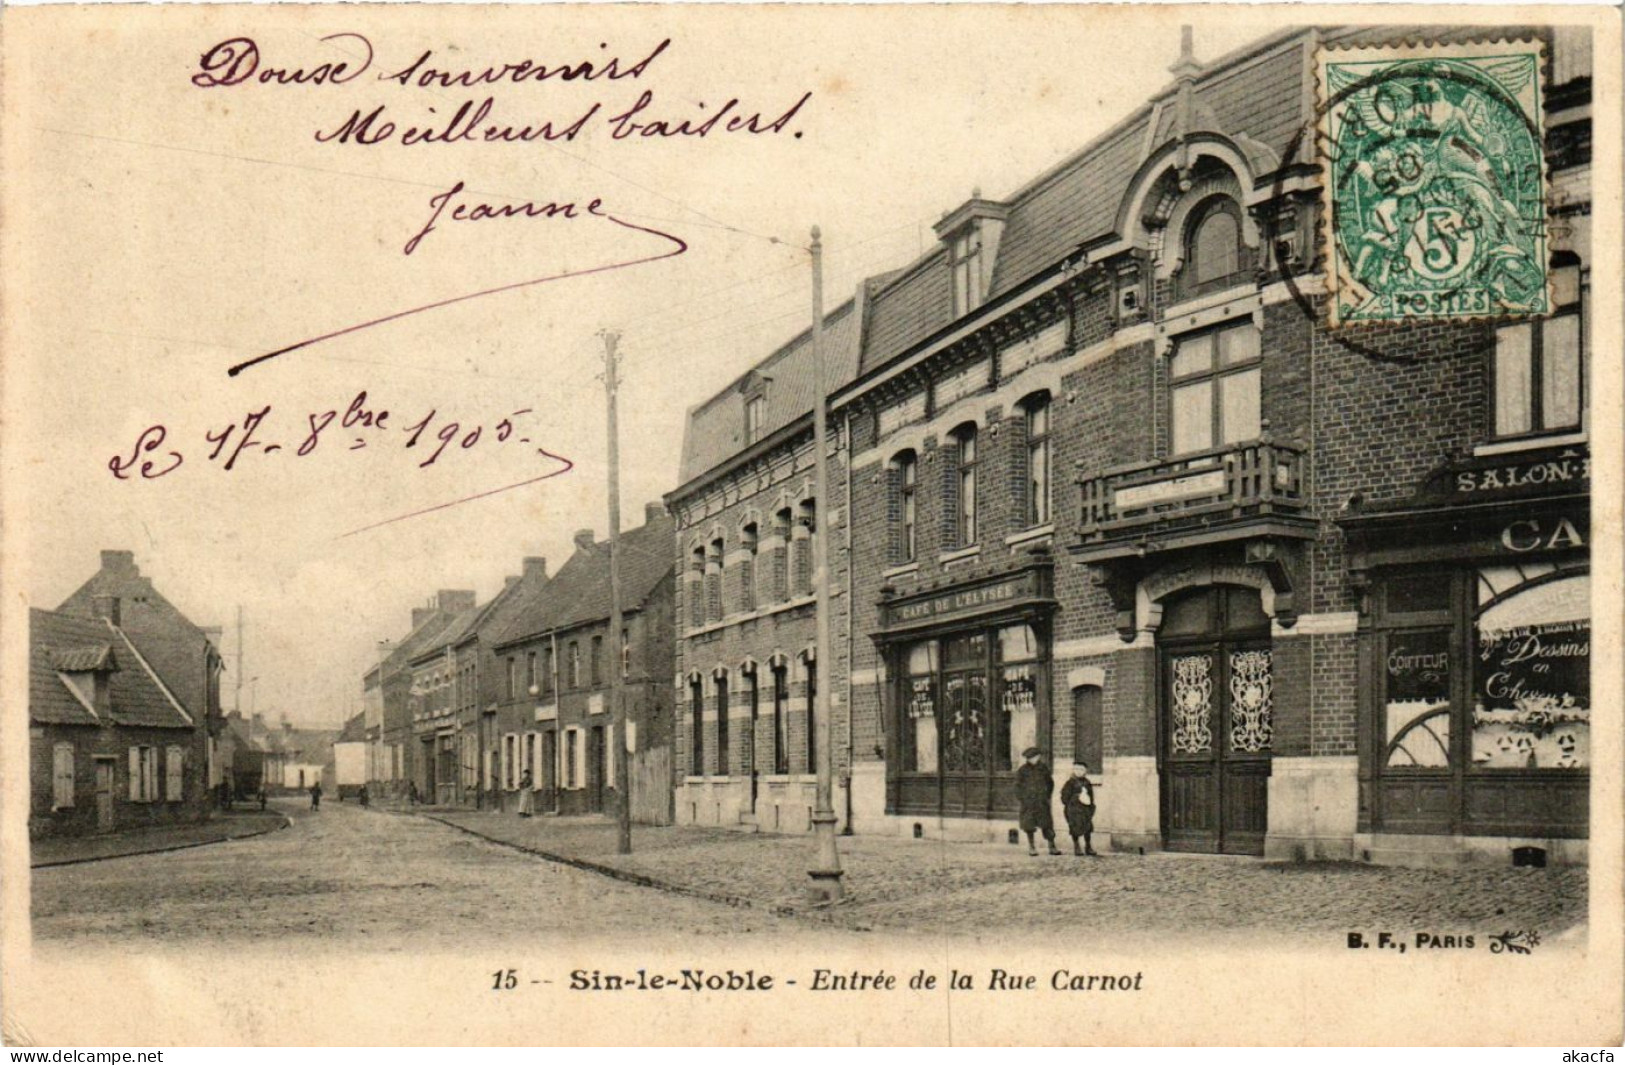 Douse souvenirs
Meilleurs baisers.
Jeanne
Le 17 - 8bre 1905 -
5
POSTES
NORD
05
SALON
CA
CAFÉ DE L'ELYSÉE
CAFÉ
DE
L'ELYSÉE
COIFFEUR
Dessins
en
Cheveux
B. F., PARIS
15 -- Sin-le-Noble - Entrée de la Rue Carnot
www.delcampe.net
akacfa